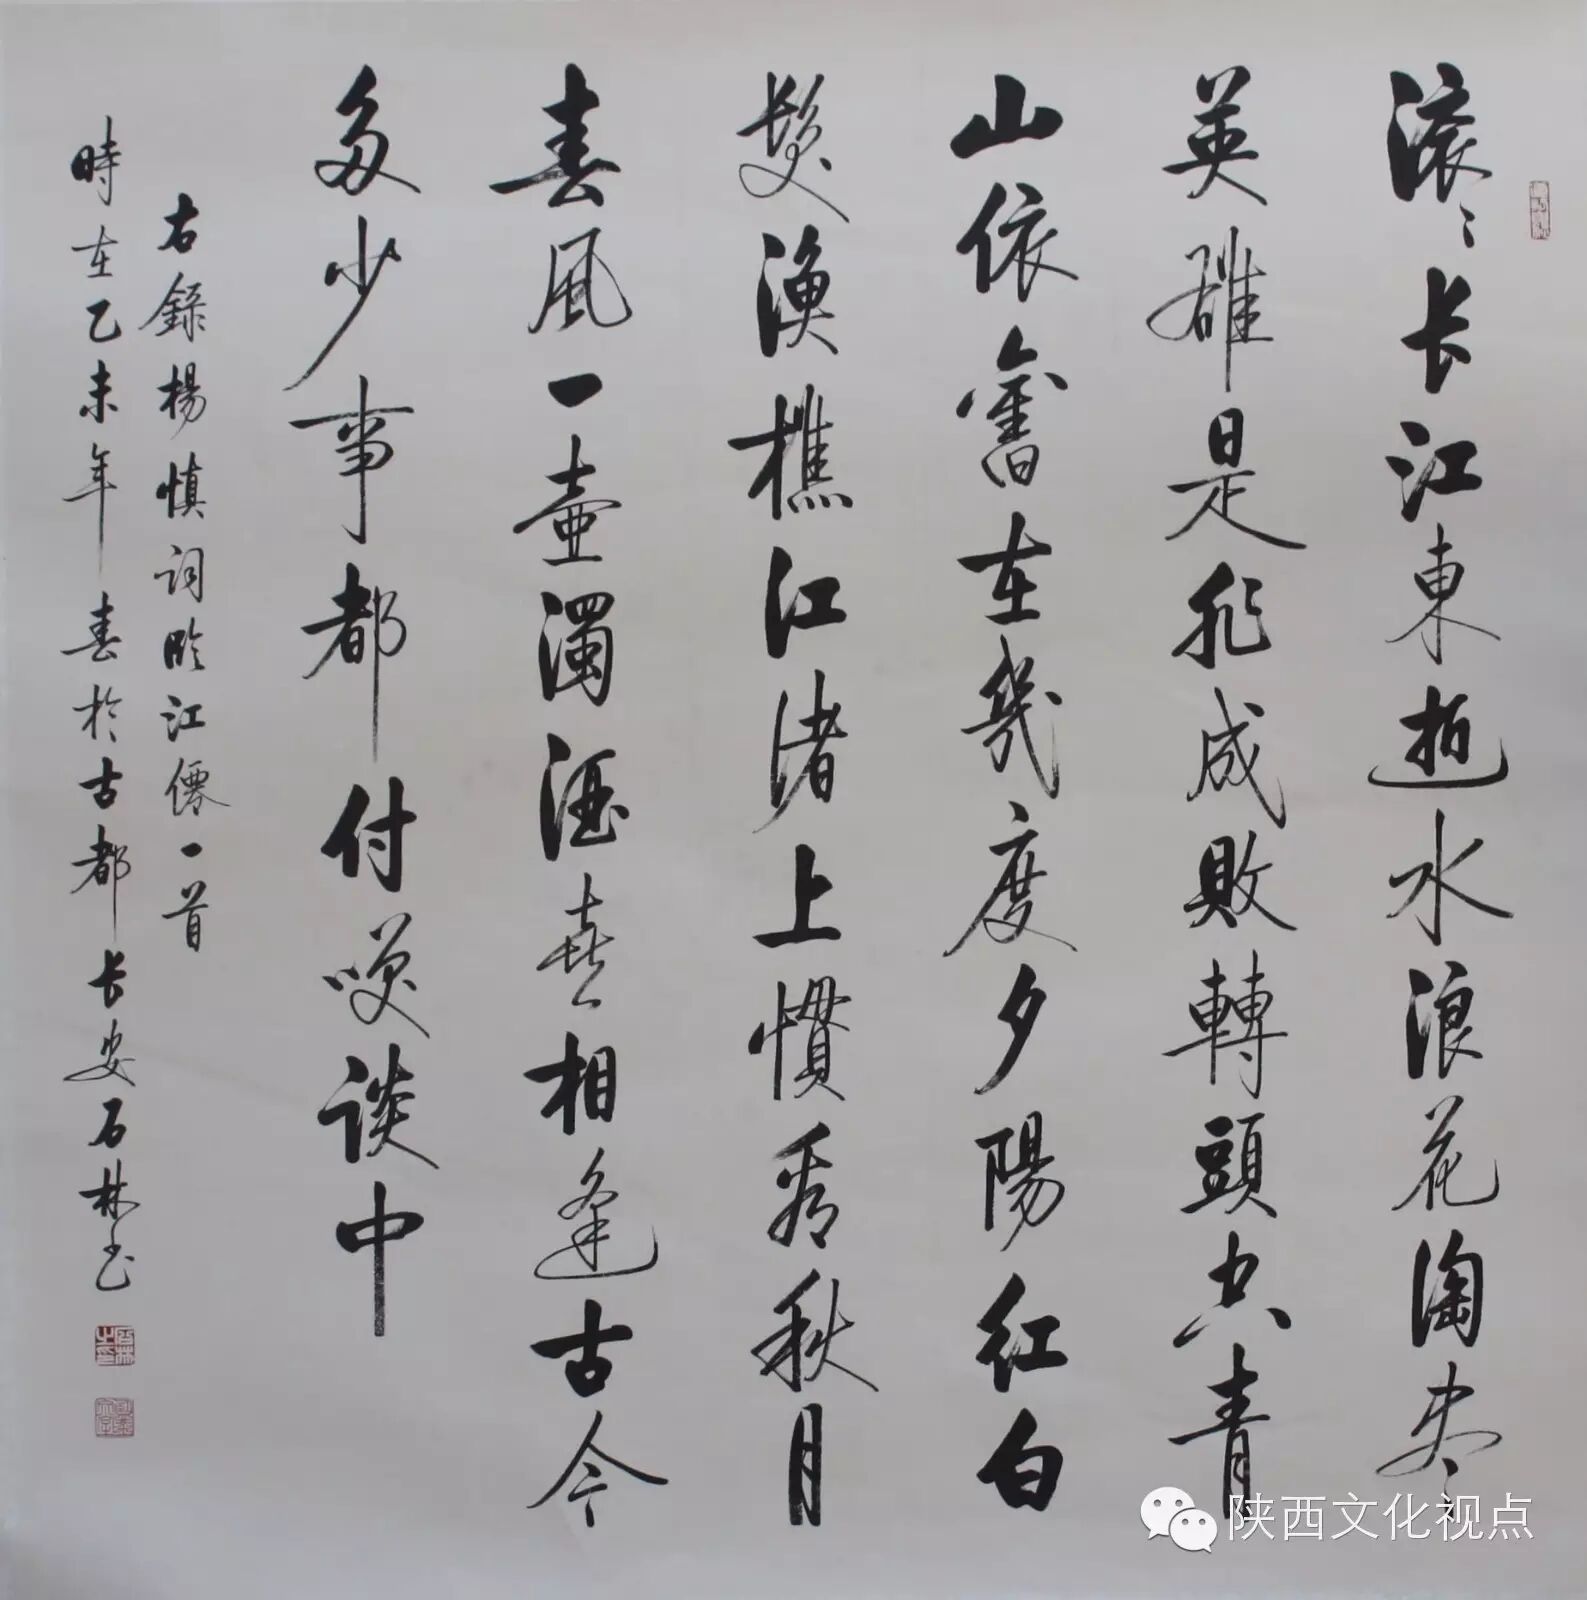 滚〻长江東逝水浪花淘尽
英雄是非成敗轉頭空青
山依舊在幾度夕陽红白
髮渔樵江渚上慣看秋月
春风一壶濁酒喜相逢古今
多少事都付笑谈中
右錄楊慎词临江僊一首
時在乙未年春於古都长安石林书
石林之印
陕西文化视点